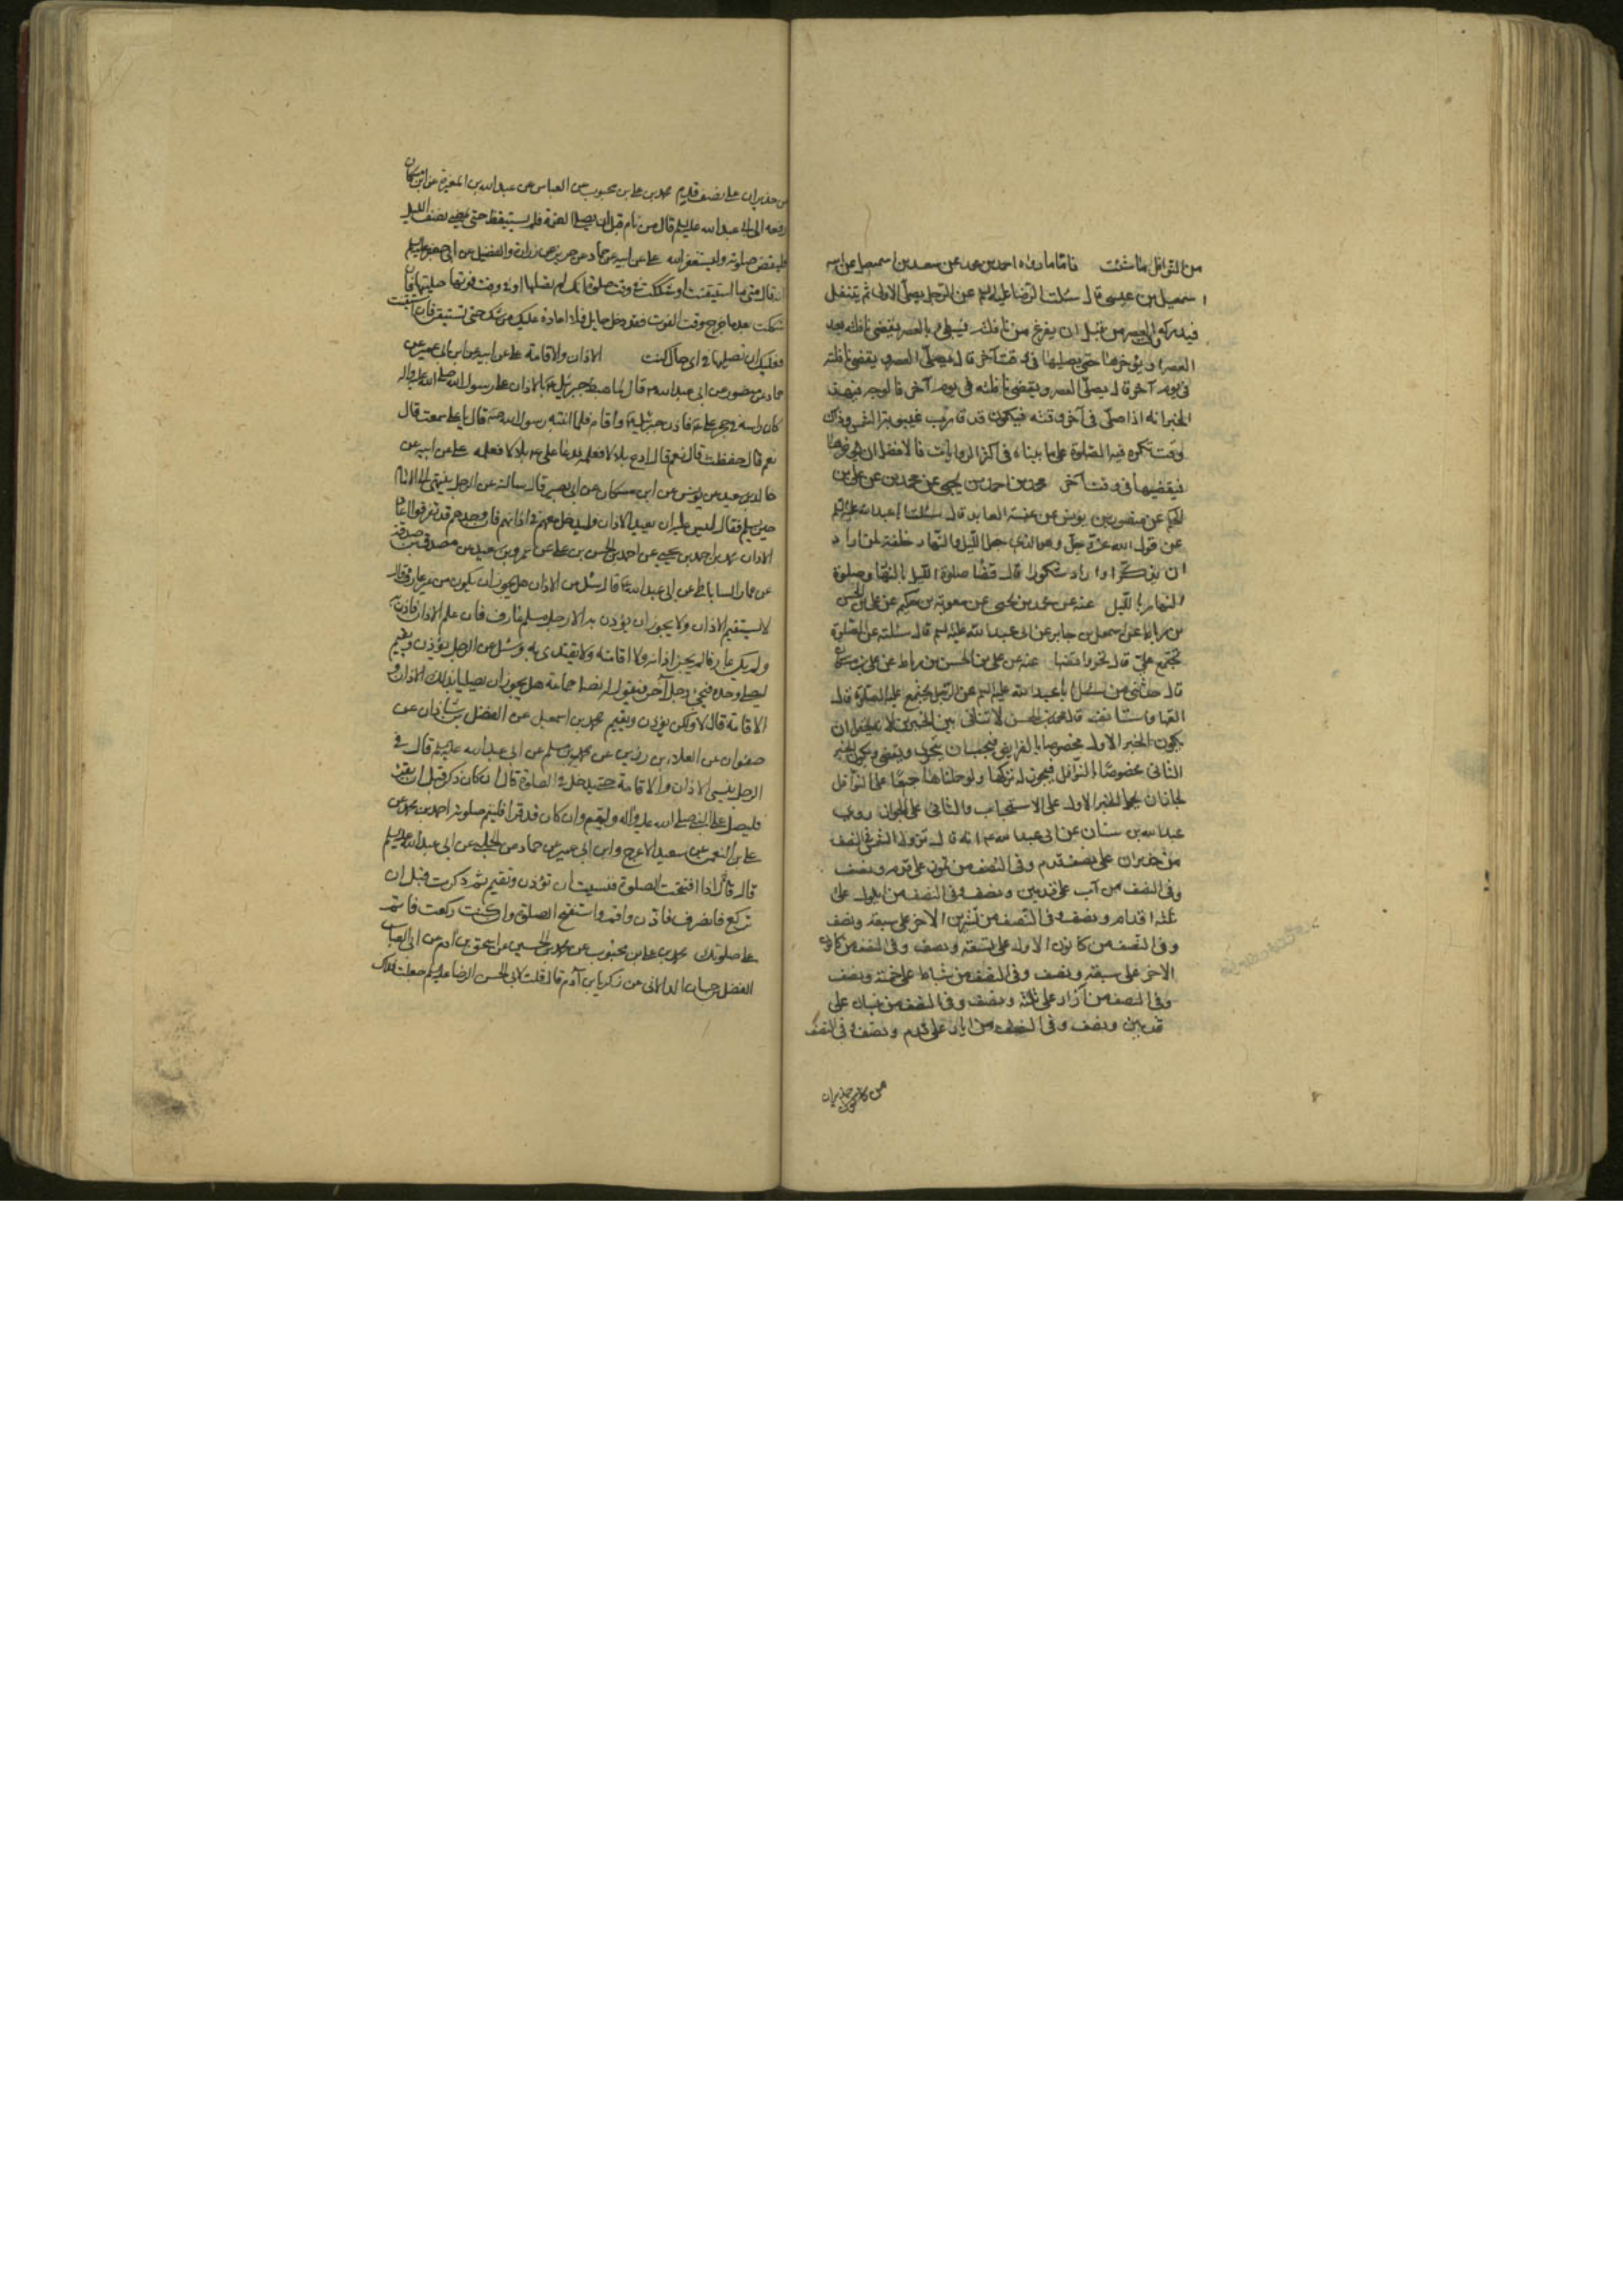 من النوافل ما شئت فاما ما رواه احمد بن محمد عن سعد بن اسمعيل عن ابيه
اسمعيل بن عيسى قال سئلت الرضا عليه السلم عن الرجل يصلى الاولى ثم يتنفل
فيدركه وقت العصر من قبل ان يفرغ من نافلته فيبطى بالعصر يقضى نافلته بعد
العصر او يؤخرها حتى يصليها فى وقت آخر قال يصلى العصر و يقضى نافلته
فى يوم آخر قال يصلى العصر و يقضى نافلته فى يوم آخر فالوجه فى هذا
الخبر انه اذا صلى فى آخر وقته فيكون قد قارب غيبوبة الشمس وذلك
وقت تكره فيه الصلوة على ما بيناه فى اكثر الروايات فالافضل ان يؤخرها
فيقضيها فى وقت آخر محمد بن احمد بن يحيى عن محمد بن عن على بن
الحكم عن منصور بن يونس عن عنبسة العابد قال سئلت ابا عبد الله عليه السلم
عن قول الله عز و جل و هو الذى جعل الليل و النهار خلفة لمن اراد
ان يذكر او اراد شكورا قال قضاء صلوة الليل بالنهار و صلوة
النهار بالليل عنه عن محمد بن يحيى عن معوية بن حكيم عن على بن الحسن
بن رباط عن اسمعيل بن جابر عن ابى عبد الله عليه السلم قال سئلته عن الصلوة
تجتمع على قال تحر و اقضها عنه عن على بن الحسن بن رباط عن على بن مسكان
قال حدثنى من سئل ابا عبد الله عليه السلم عن الرجل يجتمع عليه الصلوة قال
القها و استانف قال محمد بن الحسن لا تنافى بين الخبرين لانه يحتمل ان
يكون الخبر الاول مخصوصا بالفرايض فيجب ان يتحرى و يقضى و يكون الخبر
الثانى مخصوصا بالنوافل فيجوز له تركها و لو حملناهما جميعا على النوافل
لجاز ان يحمل الخبر الاول على الاستحباب و الثانى على الجواز روى
عبد الله بن سنان عن ابى عبد الله عم انه قال تزول الشمس فى النصف
من حزيران على نصف قدم و فى النصف من تموز على قدم و نصف
و فى النصف من آب على قدمين و نصف و فى النصف من ايلول على
ثلثة اقدام و نصف و فى النصف من تشرين الاخر على سبعة و نصف
و فى النصف من كانون الاول على تسعة و نصف و فى النصف من كانون
الاخر على سبعة و نصف و فى النصف من شباط على خمسة و نصف
و فى النصف من آزار على ثلثة و نصف و فى النصف من نيسان على
قدمين و نصف و فى النصف من ايار على قدم و نصف و فى النصف
من حزيران
من حزيران على نصف قدم محمد بن على بن محبوب عن العباس عن عبد الله بن المغيرة عن ابن مسكان
رفعه الى ابى عبد الله عليه السلم قال من نام قبل ان يصلى العتمة فلم يستيقظ حتى يمضى نصف الليل
فليقض صلوته و ليستغفر الله على عن ابيه عن حماد عن حريز عن زرارة و الفضيل عن ابى جعفر عليه السلم
انه قال متى ما استيقنت او شككت فى وقت صلوة انك لم تصلها او فى وقت فوتها صليتها فان
شككت بعد ما خرج وقت الفوت فقد دخل حايل فلا اعادة عليك من شك حتى تستيقن فان استيقنت
فعليك ان تصليها فى اى حال كنت الاذان و الاقامة على عن ابيه عن ابن ابى عمير عن
حماد عن منصور عن ابى عبد الله عم قال لما هبط جبرئيل عم بالاذان على رسول الله صلى الله عليه و اله
كان راسه فى حجر على عم فاذن جبرئيل عم و اقام فلما انتبه رسول الله ص قال يا على سمعت قال
نعم قال حفظت قال نعم قال ادع بلالا فعلمه فدعا على عم بلالا فعلمه على عن ابيه عن
خالد بن سعيد عن يونس عن ابن مسكان عن ابى بصير قال سالته عن الرجل ينتهى الى الامام
حين يسلم فقال ليس عليه ان يعيد الاذان و ليدخل معهم فى اذانهم فان وجدهم قد تفرقوا اعاد
الاذان محمد بن احمد بن يحيى عن احمد بن الحسن بن على عن عمرو بن سعيد عن مصدق بن صدقة
عن عمار الساباطى عن ابى عبد الله عم قال سئل عن الاذان هل يجوز ان يكون من غير عارف قال
لا يستقيم الاذان و لا يجوز ان يؤذن به الا رجل مسلم عارف فان علم الاذان فاذن به
و لم يكن عارفا لم يجز اذانه و لا اقامته و لا يقتدى به و سئل عن الرجل يؤذن و يقيم
ليصلى وحده فيجئ رجل آخر فيقول له نصلى جماعة هل يجوز ان يصليا بذلك الاذان و
الاقامة قال لا و لكن يؤذن و يقيم محمد بن اسمعيل عن الفضل بن شاذان عن
صفوان عن العلا بن رزين عن محمد بن مسلم عن ابى عبد الله عليه السلم قال فى
الرجل ينسى الاذان و الاقامة حتى يدخل فى الصلوة قال ان كان ذكر قبل ان يقرء
فليصل على النبى صلى الله عليه و آله و ليقم و ان كان قد قرا فليتم صلوته احمد بن محمد عن
على بن النعمن عن سعيد الاعرج و ابن ابى عمير عن حماد عن الحلبى عن ابى عبد الله عليه السلم
قال قال اذا افتتحت الصلوة فنسيت ان تؤذن و تقيم ثم ذكرت قبل ان
تركع فانصرف فاذن و اقم و استفتح الصلوة و ان كنت ركعت فاتم
على صلوتك محمد بن على بن محبوب عن محمد بن الحسين عن اسحق بن آدم عن ابى العباس
الفضل بن حسان الدالانى عن زكريا بن آدم قال قلت لابى الحسن الرضا عليه السلم جعلت فداك